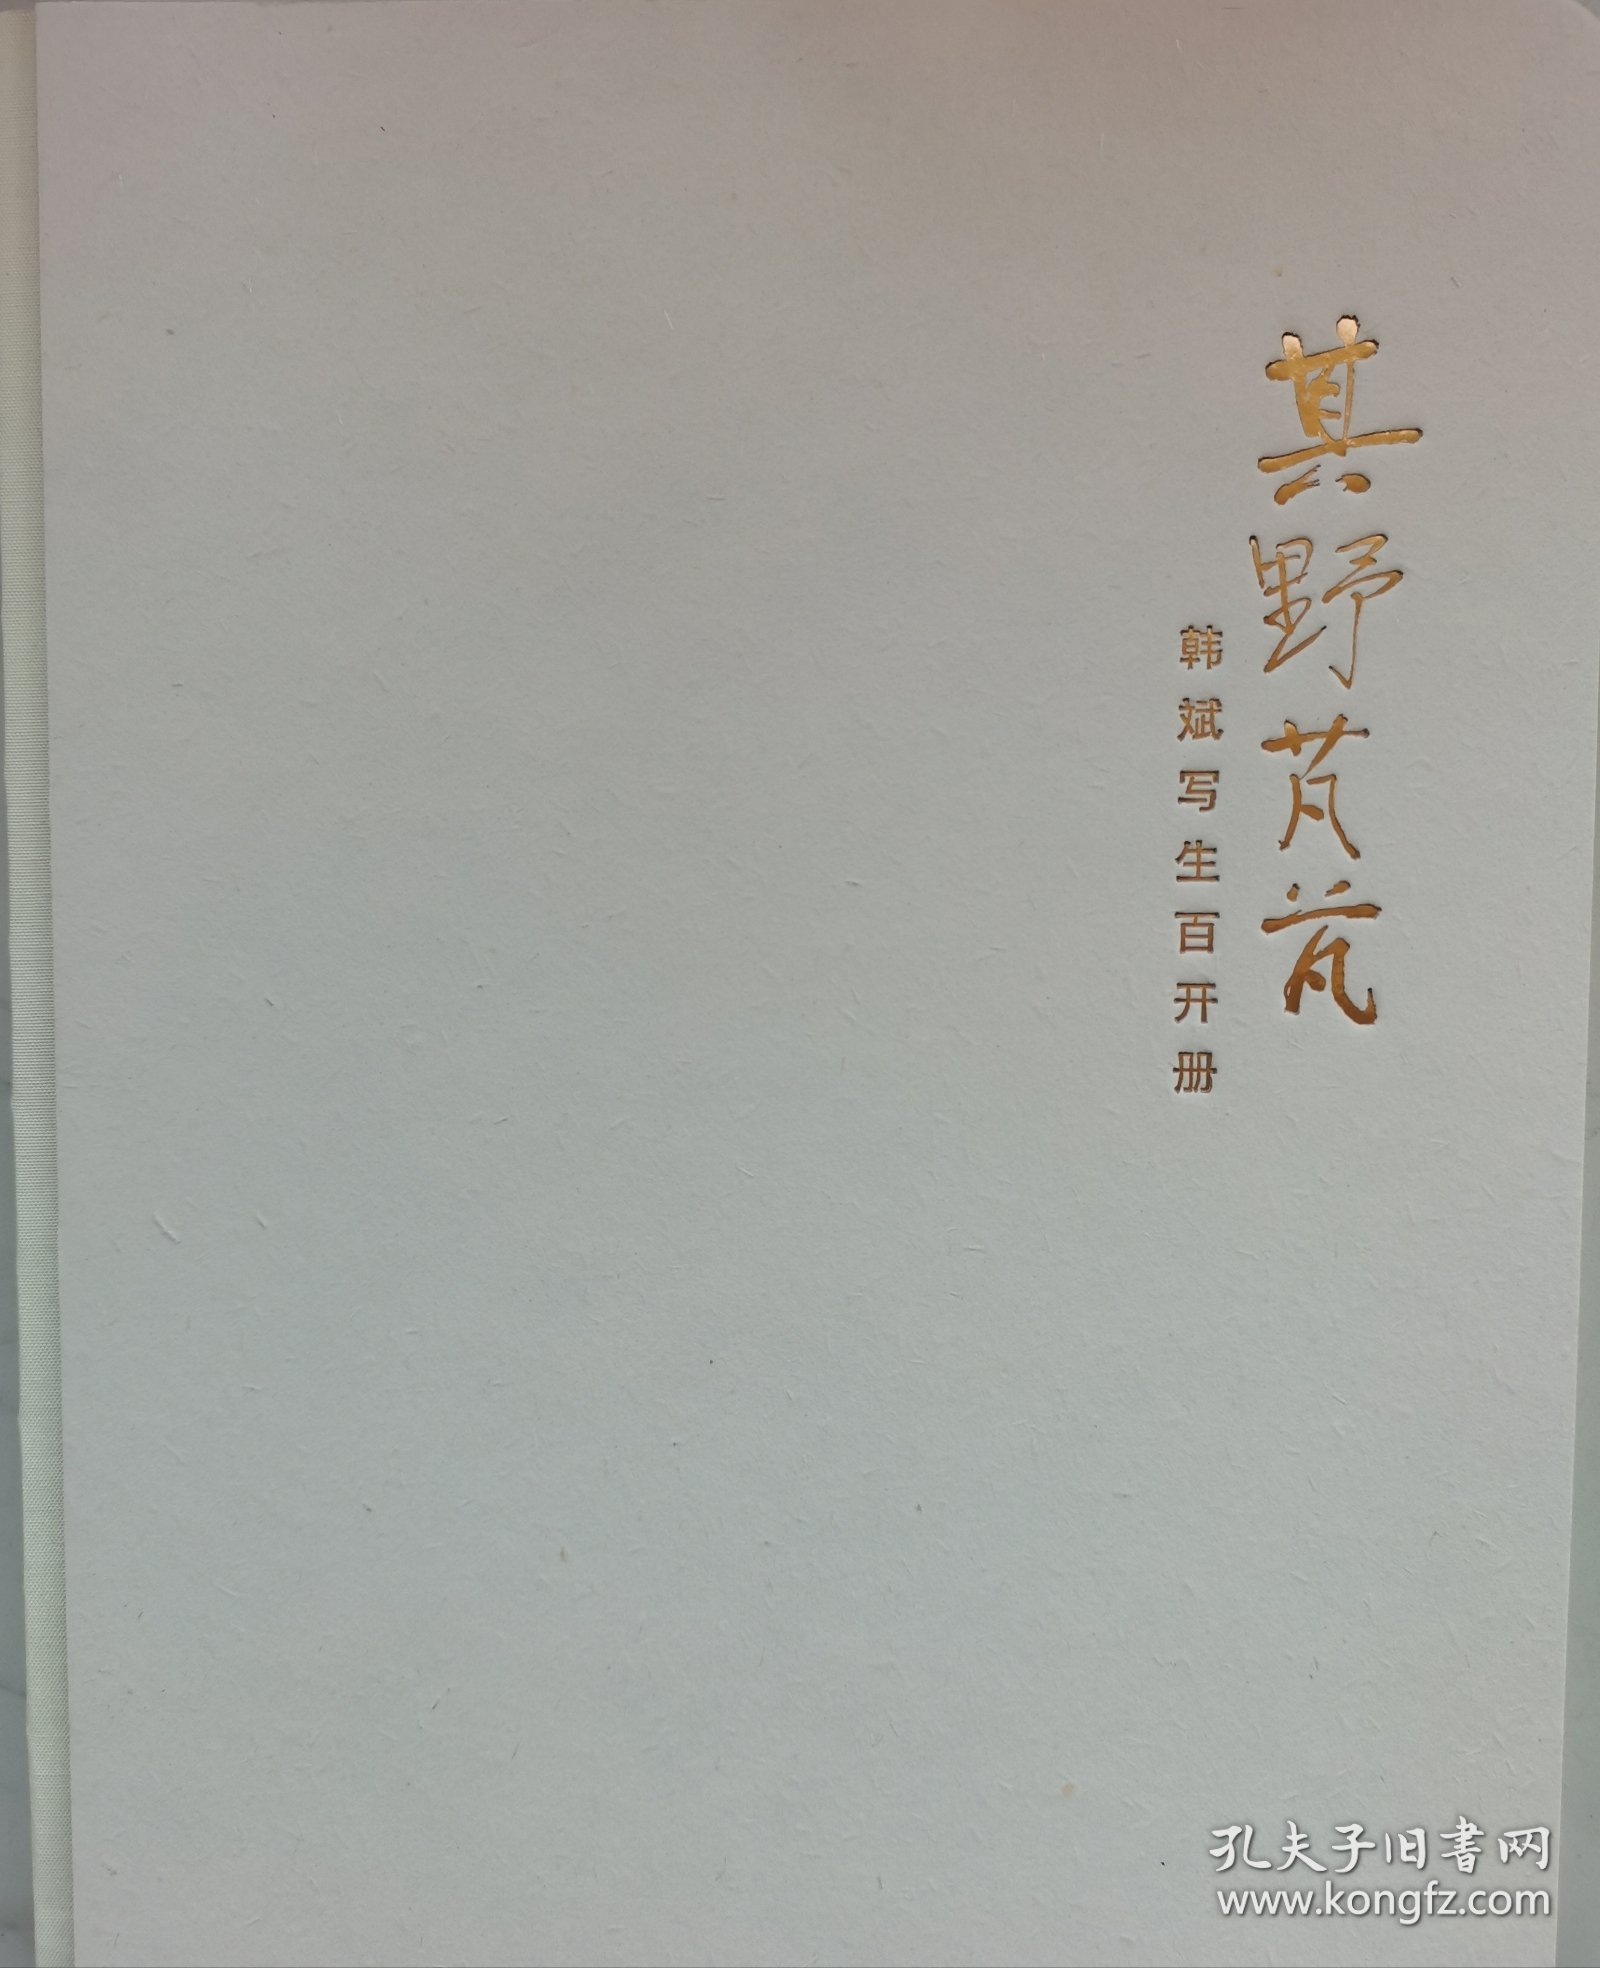 其野芃芃
韩斌写生百开册
孔夫子旧书网
www.kongfz.com